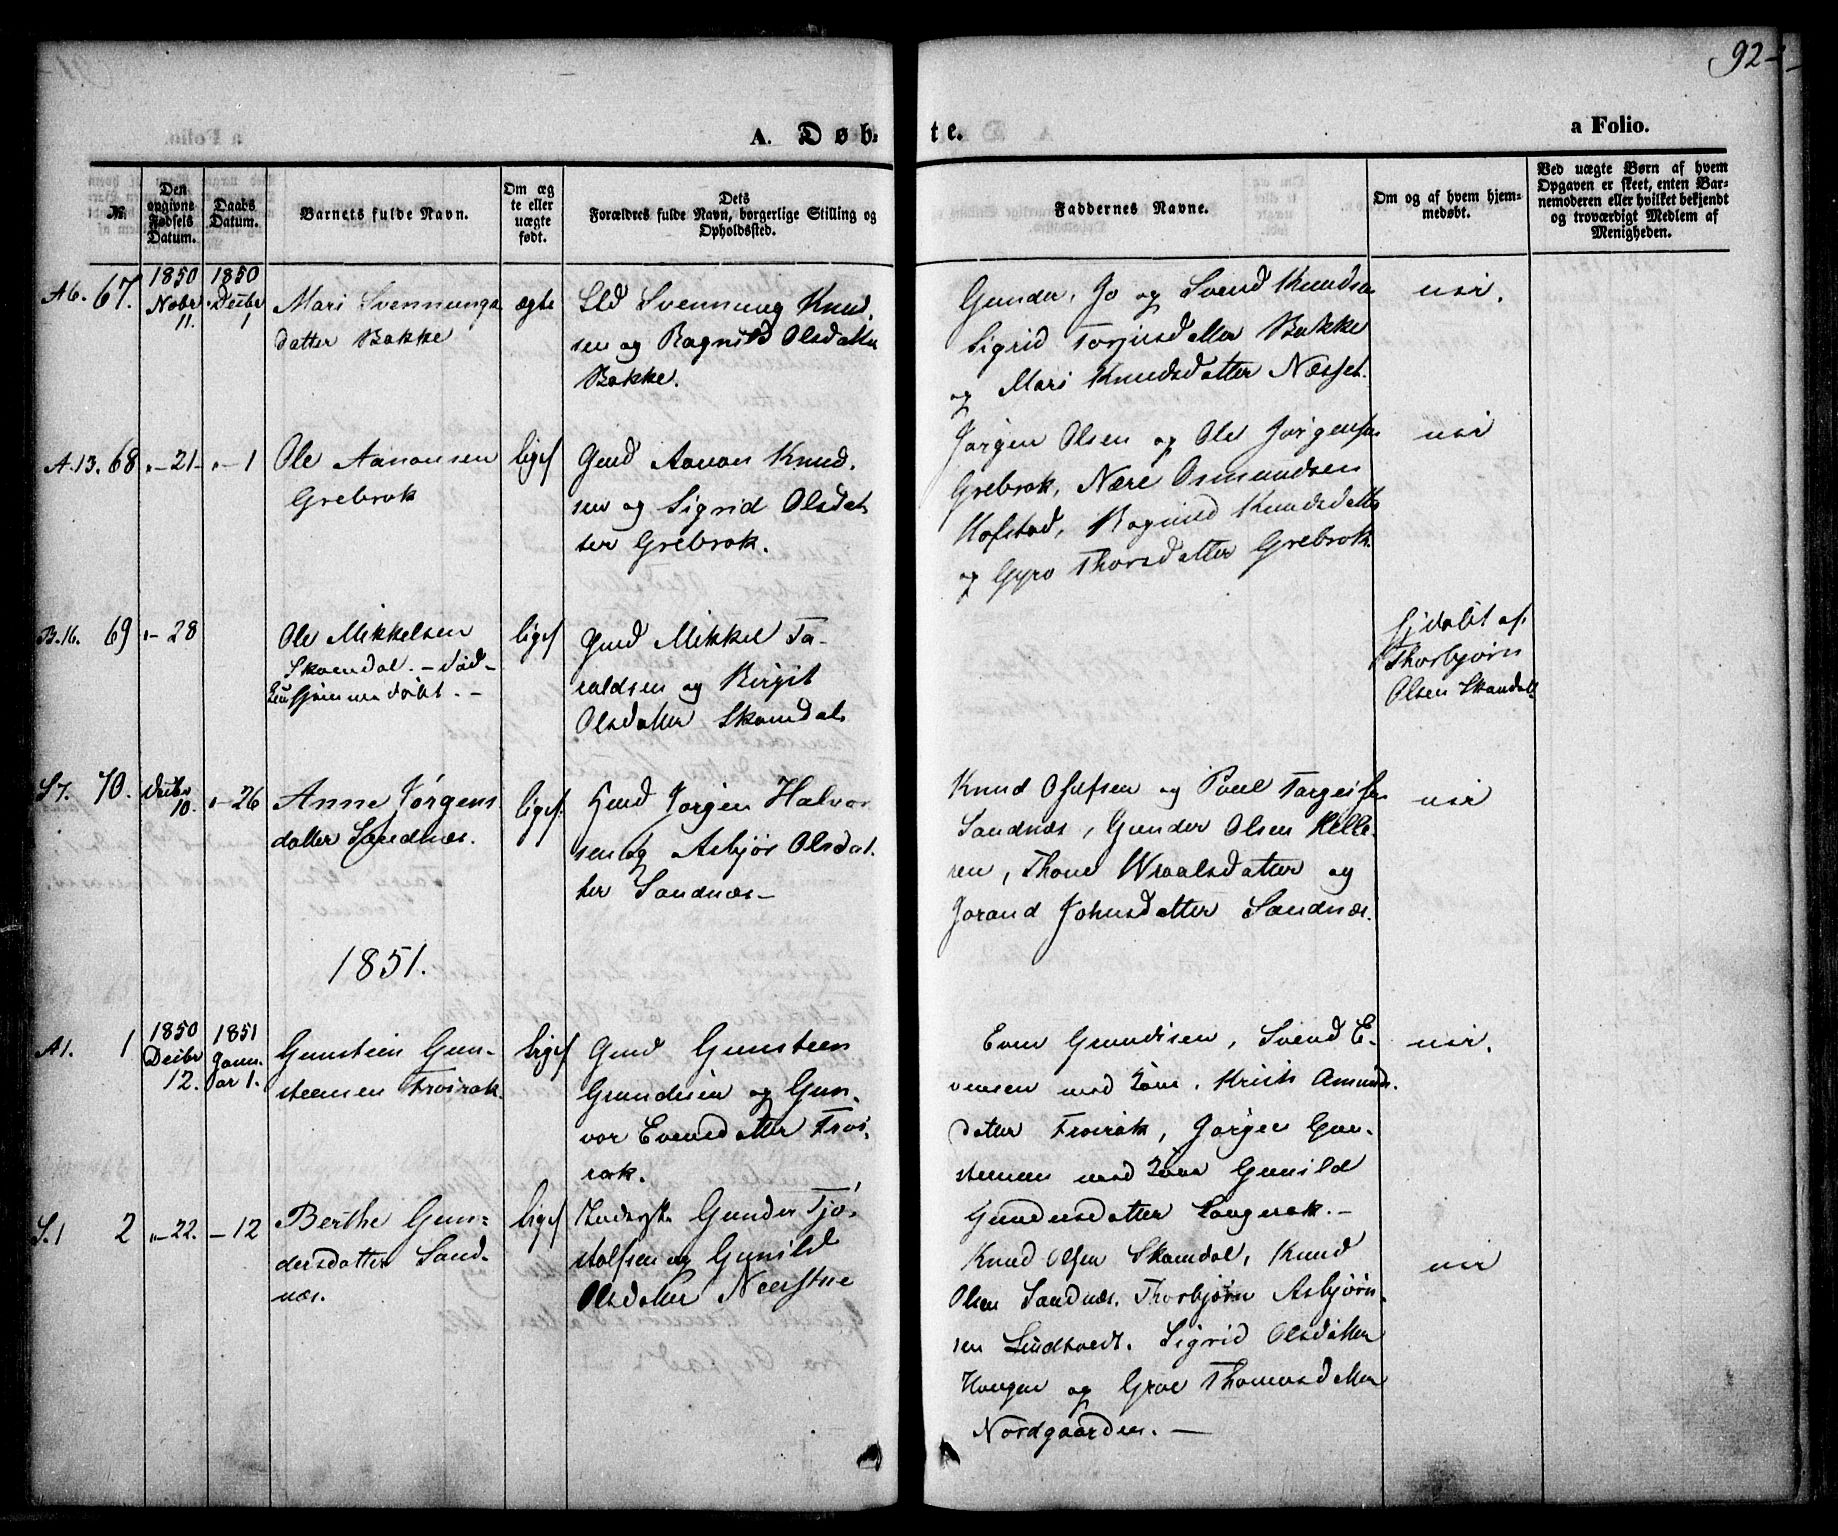 92
A. Døb-
te.
a Folio.
No.
Den
opgivne
Fødsels
Datum.
Daabs
Datum.
Barnets fulde Navn.
Om æg
te eller
uægte
født.
Dets
Forældres fulde Navn, borgerlige Stilling og
Opholdssted.
Faddernes Navne.
Om og af hvem hjem-
medøbt.
Ved uægte Børn af hvem
Opgaven er skeet, enten Bar-
nemoderen eller hvilket bekjendt
og troværdigt Medlem af
Menigheden.
A6. 67.
1850
Nobr
11.
1850
Decbr
1
Mari Svennungs
datter Bakke
ægte
Svennung Knud,
sen og Ragnild Olsdatter
Bakke.
Gunder, Jo og Svend Knudsen
Sigrid Torjusdatter Bakke
og Mari Knudsdatter Næsset.
nei.
A.13. 68
"-21-
"-1
Ole Aanonsen
Grebrok
liges
Gmd Aanon Knud,
sen og Sigrid Olsdat
ter Grebrok.
Jørgen Olsen og Ole Jørgensen
Grebrok, Nære Osmundsen
Hofstad, Ragnild Knudsdatter
og Gyro Thorsdatter Grebrok.
nei
B.16. 69
"-28
Ole Mikkelsen
Skamdal. - død-
hjemmedøbt. -
liges
Gmd Mikkel Ta-
raldsen og Birgit
Olsdatter Skamdal
hjdøbt af
Thorbjørn
Olsen Skamdal
S7. 70.
Decbr
10.
"-26
Anne Jørgens
datter Sandnæs.
liges.
Hmd Jørgen Halvor
sen og Asbjør Olsdat.
ter Sandnæs-
Knud Olafsen og Poul Torgeisen
Sandnæs, Gunder Olsen Helle-
ren, Thone Wraalsdatter og
Jorand Johnsdatter Sandnæs.
nei
1851.
A1. 1
1850
Decbr
12.
1851
Janu-
ar 1.
Gunstein Gun-
steensen Frøirak.
liges
Gmd Gunsteen
Grundesen og Gun-
vor Evensdatter Frøi.
rak.
Even Grundesen, Svend E-
vensen med Kone, Kristi Amunds.
datter Frøirak, Jørgen Gun-
steensen med Kone Gunild
Gundersdatter Langerak.-
nei.
S.1 2
"-22.
-12
Berthe Gun-
dersdatter Sand-
næs.
liges
Gunder Tjø.
stolfsen og Gunild
Olsdatter
Knud Olsen Skamdal, Knud
Olsen Sandnæs, Thorbjørn Asbjørn-
sen Lindtveit. Sigrid Olsdatter
Haugen og Groe Thomasdatter
Nordgaarden. -
nei